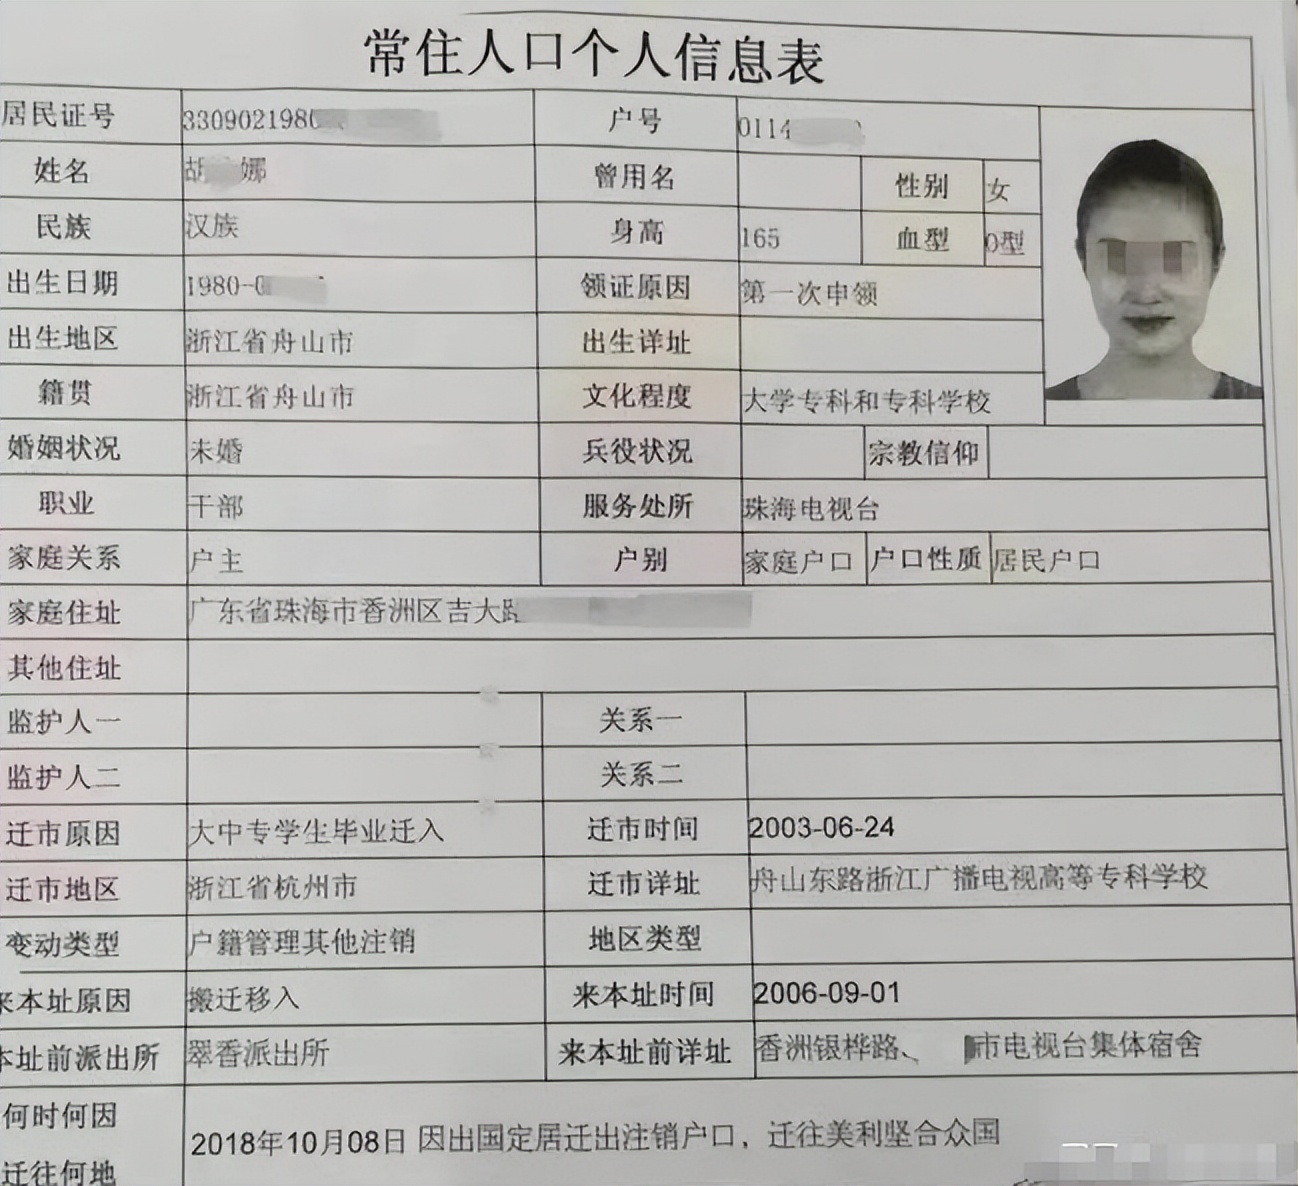 常住人口个人信息表
居民证号 330902198 户号 0114
姓名 胡 娜 曾用名 性别 女
民族 汉族 身高 165 血型 O型
出生日期 1980-0 领证原因 第一次申领
出生地区 浙江省舟山市 出生详址
籍贯 浙江省舟山市 文化程度 大学专科和专科学校
婚姻状况 未婚 兵役状况 宗教信仰
职业 干部 服务处所 珠海电视台
家庭关系 户主 户别 家庭户口 户口性质 居民户口
家庭住址 广东省珠海市香洲区吉大路
其他住址
监护人一 关系一
监护人二 关系二
迁市原因 大中专学生毕业迁入 迁市时间 2003-06-24
迁市地区 浙江省杭州市 迁市详址 舟山东路浙江广播电视高等专科学校
变动类型 户籍管理其他注销 地区类型
来本址原因 搬迁移入 来本址时间 2006-09-01
本址前派出所 翠香派出所 来本址前详址 香洲银桦路、 市电视台集体宿舍
何时何因
迁往何地
2018年10月08日 因出国定居迁出注销户口，迁往美利坚合众国